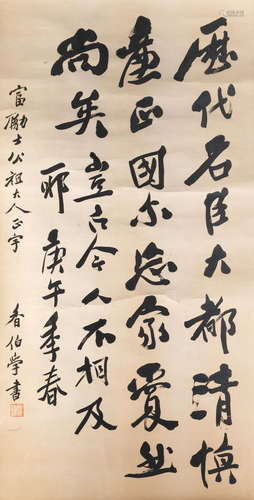 歷代名臣大都清慎
廉正國尔忘家夐然
尚矣豈古今人不相及
耶庚午季春
富勵士公祖大人正字
春伯學書